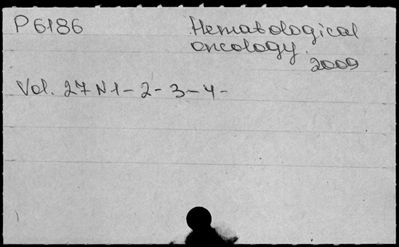 P6186
Hematological
oncology.
2009
Vol. 27 N1-2-3-4-